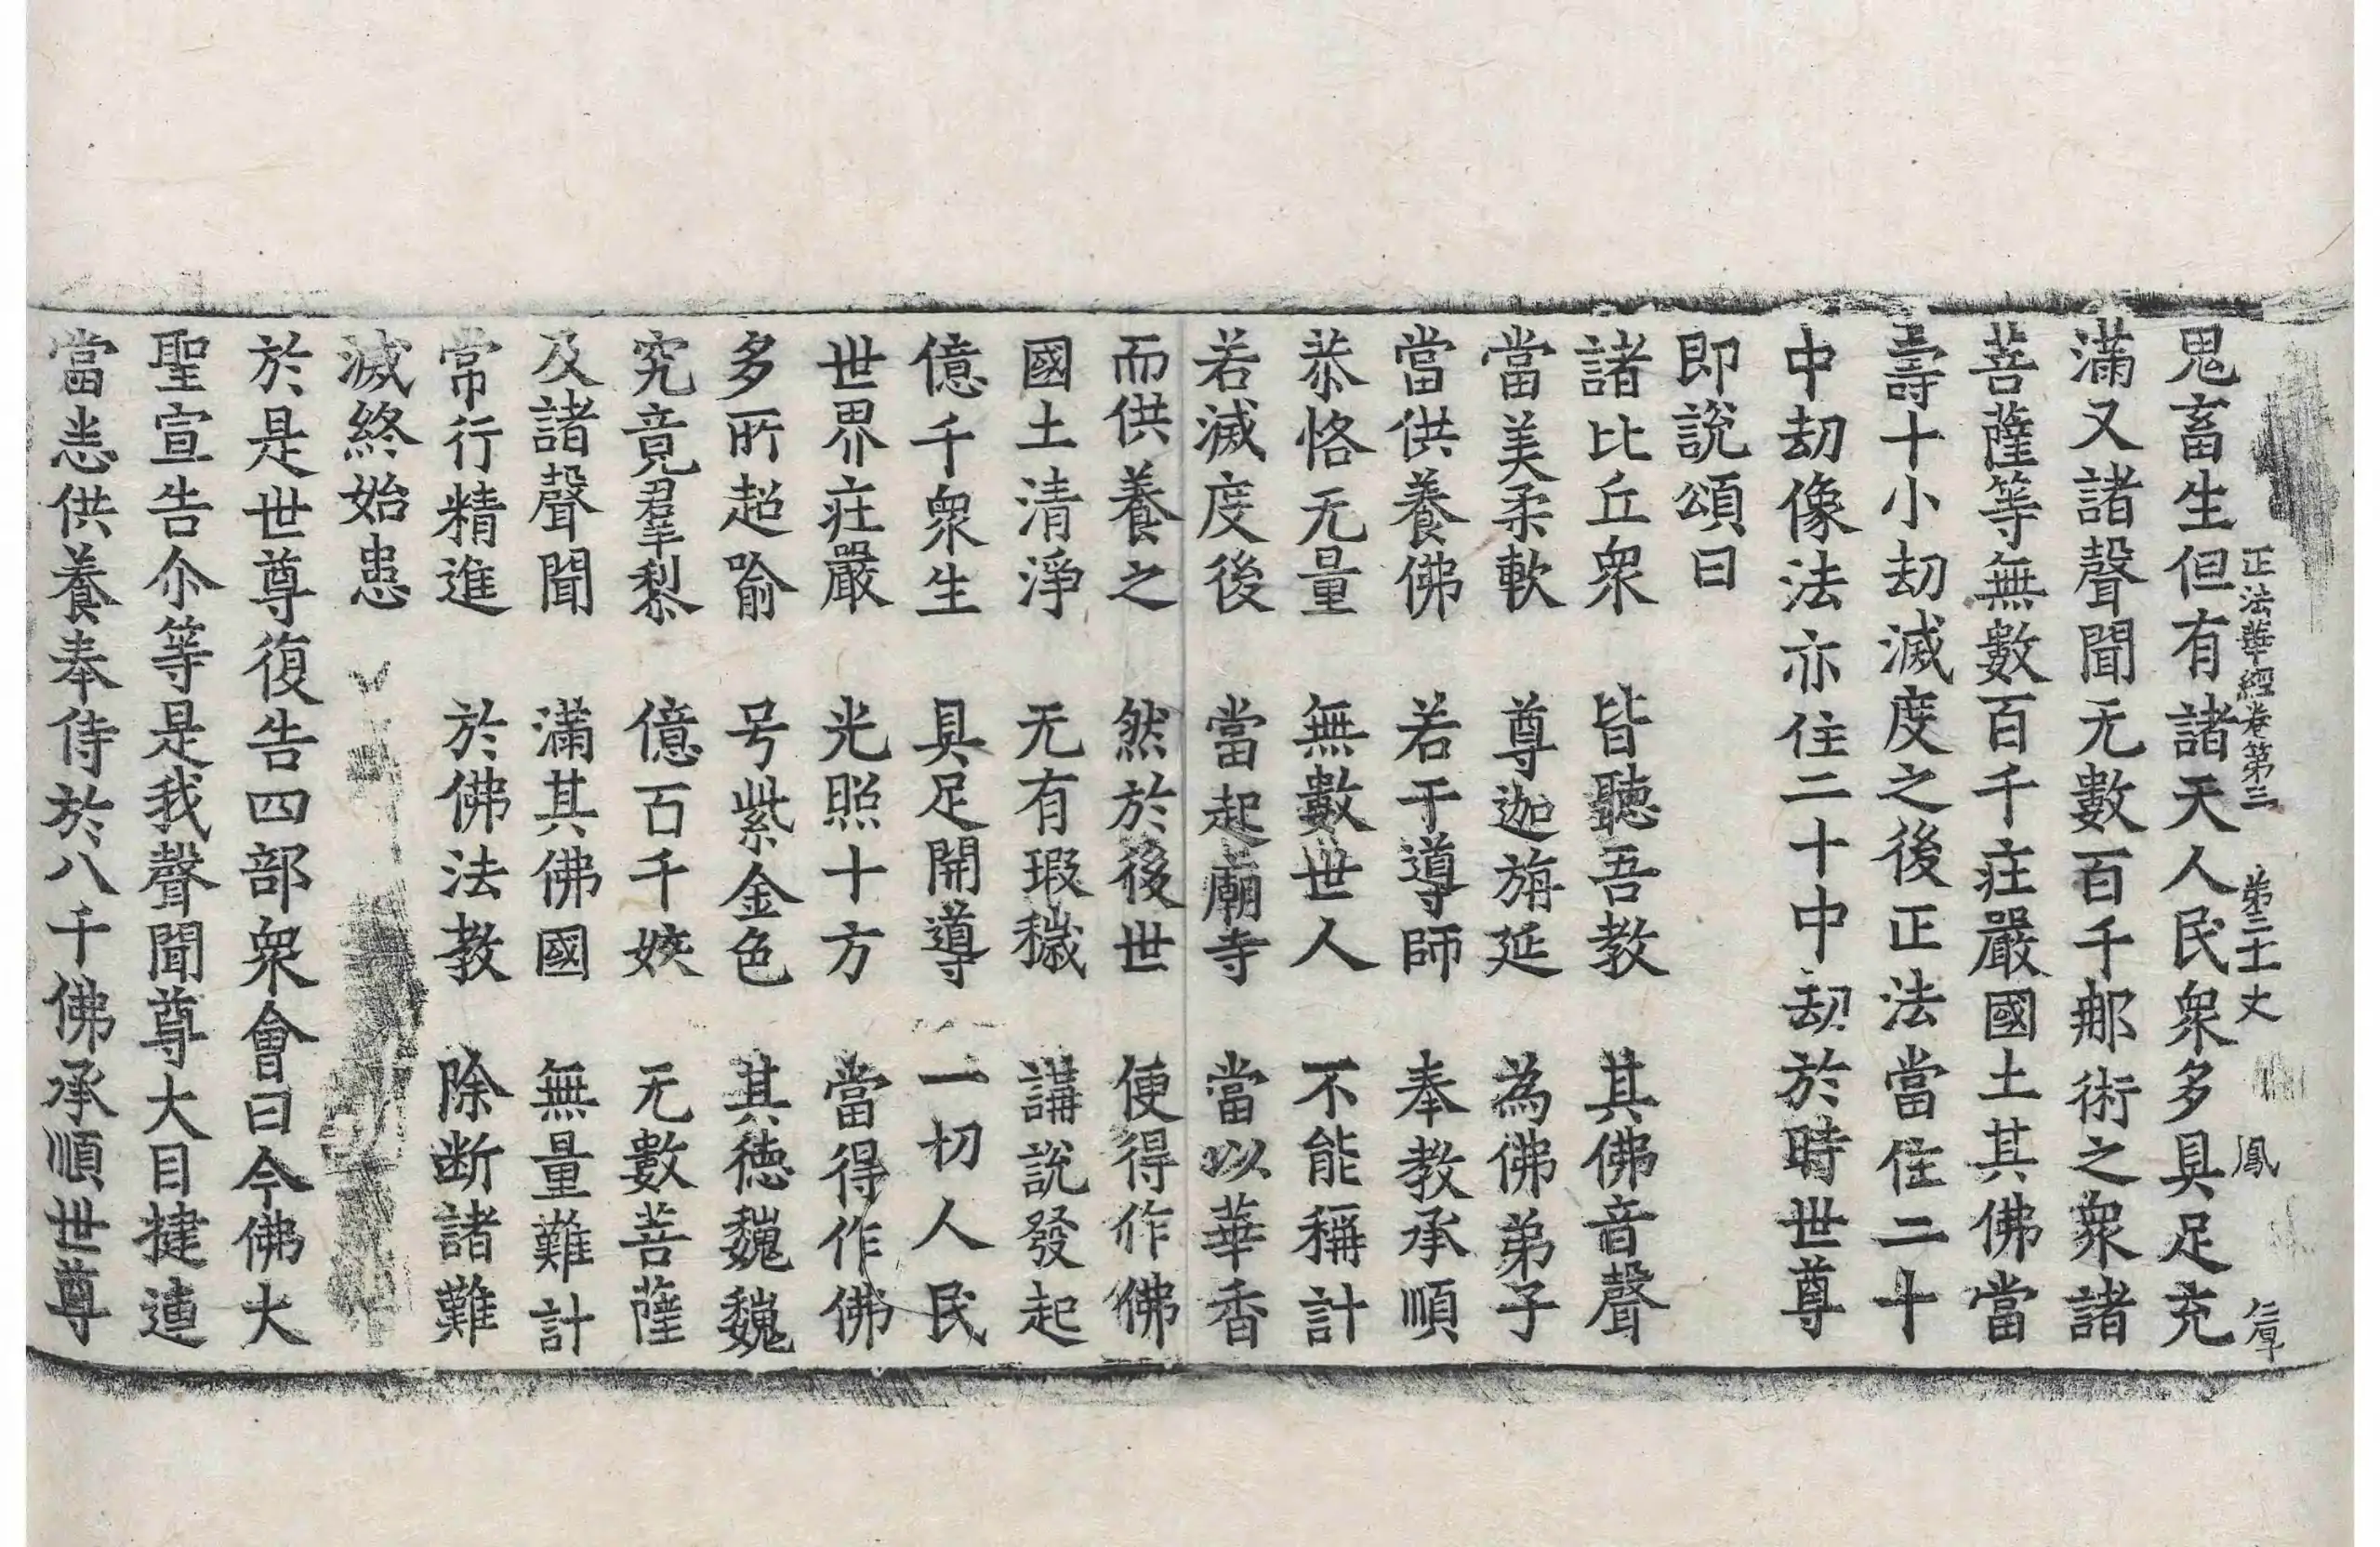 正法華經卷第三 第二十丈 鳳
鬼畜生但有諸天人民衆多具足充
滿又諸聲聞无數百千那術之衆諸
菩薩等無數百千莊嚴國土其佛當
壽十小劫滅度之後正法當住二十
中劫像法亦住二十中劫於時世尊
即說頌曰
諸比丘衆 皆聽吾教 其佛音聲
當美柔軟 尊迦旃延 為佛弟子
當供養佛 若干導師 奉教承順
恭恪无量 無數世人 不能稱計
若滅度後 當起廟寺 當以華香
而供養之 然於後世 便得作佛
國土清淨 无有瑕穢 講說發起
億千衆生 具足開導 一切人民
世界莊嚴 光照十方 當得作佛
多所超喻 号紫金色 其德巍巍
究竟羣黎 億百千姟 无數菩薩
及諸聲聞 滿其佛國 無量難計
常行精進 於佛法教 除断諸難
滅終始患
於是世尊復告四部衆會曰今佛大
聖宣告尒等是我聲聞尊大目揵連
當恚供養奉侍於八千佛承順世尊